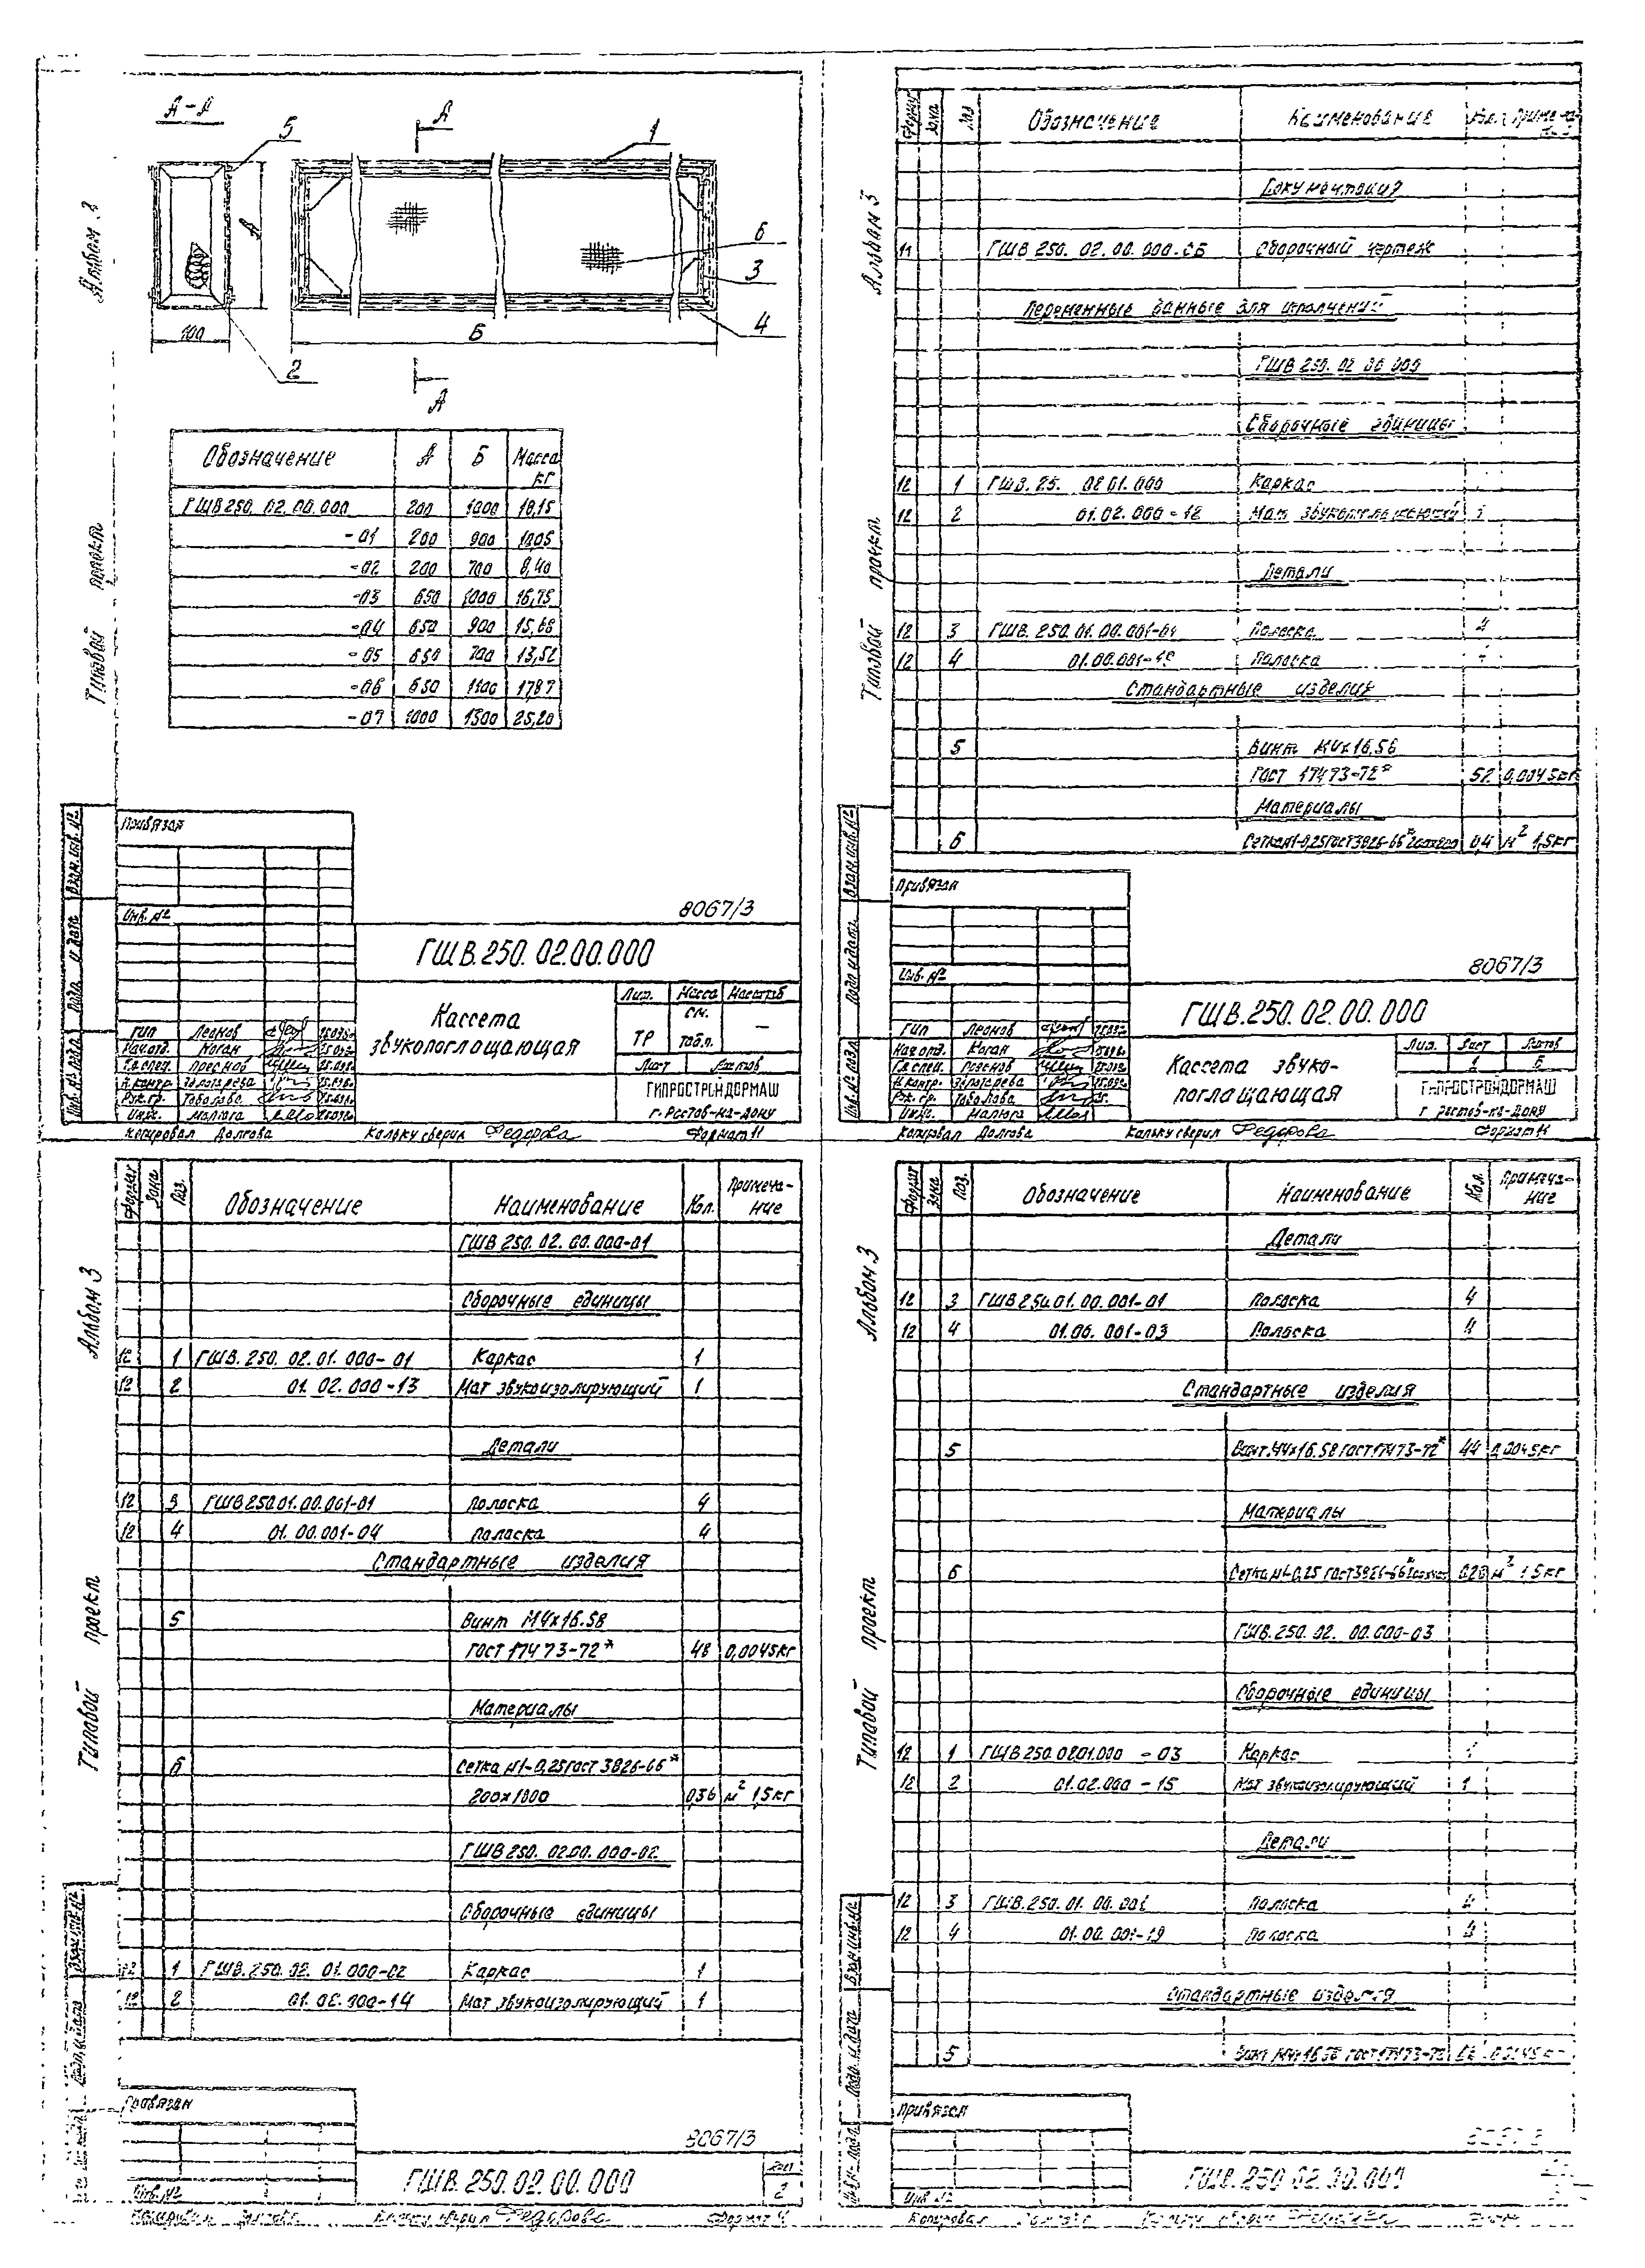 А-А
5
А
1
А
6
3
100
Б
4
2
А
Обозначение А Б Масса кг
ГШВ 250. 02.00.000 200 1000
-01 200 900
-02 200 700 8,40
-03 650 1000 16,75
-04 650 900 15,68
-05 650 700 13,52
-06 650 1100 17,87
-07 1000 1300 25,20
Альбом 3
Типовой проект
Привязан
Инв. №
8067/3
ГШВ.250.02.00.000
Кассета звукопоглощающая
Лит. Масса Масштаб
ТР см. табл. —
Лист Листов
ГИПРОСТРОЙДОРМАШ
г. Ростов-на-Дону
ГИП Леонов
Нач.отд. Коган
Гл.спец. Преснов
Н.контр.
Рук.гр.
Малюга
Взам.инв.№
Подп. и дата
Инв.№ подл.
Копировал Долгова Кальку сверил Федорова Формат 11
Альбом 3
Типовой проект
Формат Зона Поз. Обозначение Наименование Кол. Примеча-
Документация
11 ГШВ 250. 02. 00. 000. СБ Сборочный чертеж
Переменные данные для исполнений
ГШВ 250. 02 00 000
Сборочные единицы
12 1 ГШВ. 25. 02 01. 000 Каркас
12 2 01. 02. 000 - 12 Мат
Детали
12 3 ГШВ. 250.01. 00. 001-01 Полоска 4
12 4 Полоска
Стандартные изделия
5 Винт М4х16.58
ГОСТ 17473-72* 52 0,0045кг
Материалы
6 Сетка №1-0,25 ГОСТ 3826-66* 0,4 м² 1,5кг
Привязан
Инв. №
8067/3
ГШВ.250.02.00.000
Кассета звуко-
поглощающая
Лит. Лист Листов
1 6
ГИПРОСТРОЙДОРМАШ
г Ростов-на-Дону
ГИП Леонов
Нач отд. Коган
Гл.спец. Преснов
Н.контр.
Рук.гр.
Малюга
Взам.инв.№
Подп. и дата
Инв.№ подл.
Копировал Долгова Кальку сверил Федорова Формат 11
Альбом 3
Типовой проект
Формат Зона Поз. Обозначение Наименование Кол. Примеча-
ние
ГШВ 250. 02. 00. 000-01
Сборочные единицы
12 1 ГШВ. 250. 02. 01. 000-01 Каркас 1
12 2 01. 02. 000-13 Мат звукоизолирующий 1
Детали
12 3 ГШВ 250.01.00.001-01 Полоска 4
12 4 01. 00.001-04 Полоска 4
Стандартные изделия
5 Винт М4х16.58
ГОСТ 17473-72* 48 0,0045кг
Материалы
6 Сетка №1-0,25 ГОСТ 3826-66*
200х1800 0,36 м² 1,5кг
ГШВ 250. 02.00. 000-02
Сборочные единицы
12 1 ГШВ. 250. 02. 01. 000-02 Каркас 1
12 2 01. 02. 000-14 Мат звукоизолирующий 1
Привязан
Инв.№
8067/3
ГШВ.250.02.00.000
Лист
2
Копировал Долгова Кальку сверил Федорова Формат 11
Альбом 3
Типовой проект
Формат Зона Поз. Обозначение Наименование Кол. Примеча-
ние
Детали
12 3 ГШВ 250.01. 00. 001-01 Полоска 4
12 4 01. 00. 001-03 Полоска 4
Стандартные изделия
5 Винт М4х16.58 ГОСТ 17473-72* 44 0,0045кг
Материалы
6 Сетка №1-0,25 ГОСТ 3826-66* 0,28 м² 1,5кг
ГШВ. 250. 02. 00.000-03
Сборочные единицы
12 1 ГШВ 250. 02.01.000 - 03 Каркас 1
12 2 01.02.000 - 15 Мат звукоизолирующий 1
Детали
12 3 ГШВ. 250. 01. 00. 001 Полоска 4
12 4 01. 00. 001-19 Полоска 4
Стандартные изделия
5 Винт М4х16.58 ГОСТ 17473-72
Привязан
Инв. №
ГШВ.250.02.00.000
Копировал Долгова